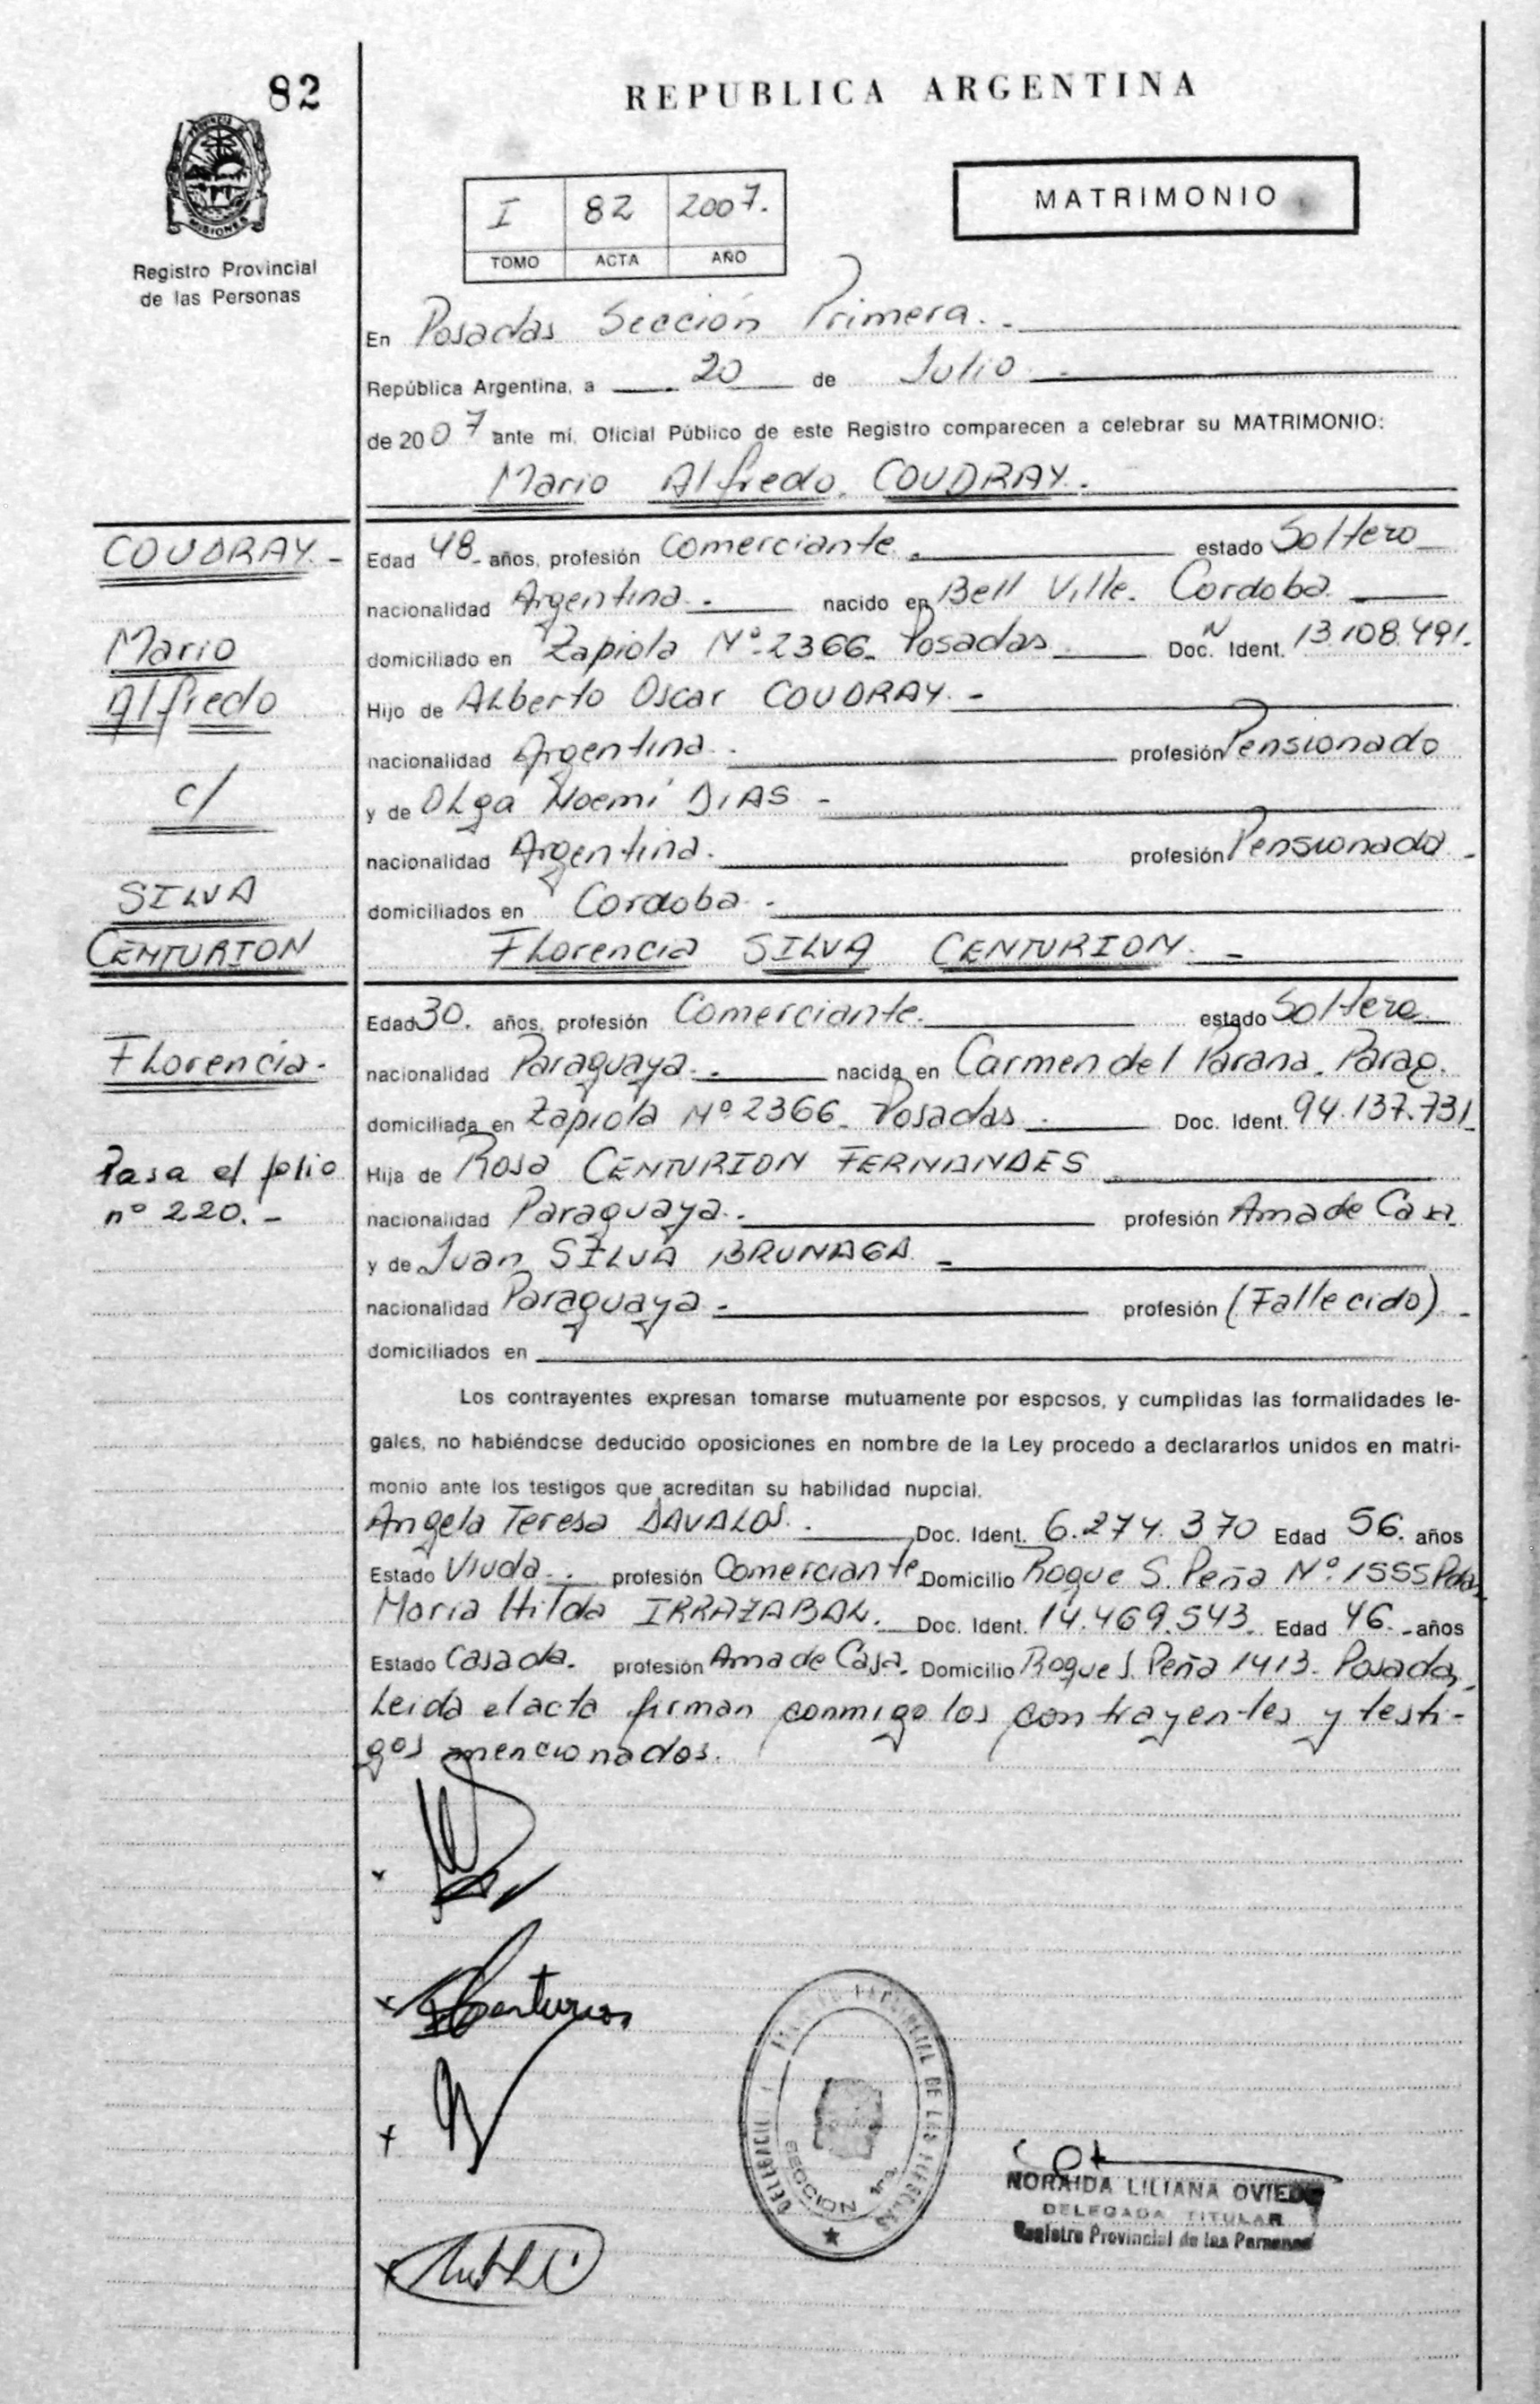 82
REPUBLICA ARGENTINA
MISIONES
Registro Provincial
de las Personas
I 82 2007.
TOMO ACTA AÑO
MATRIMONIO
En Posadas Sección Primera.-
República Argentina, a 20 de Julio
de 2007 ante mí, Oficial Público de este Registro comparecen a celebrar su MATRIMONIO:
Mario Alfredo COUDRAY.
COUDRAY.-
Mario
Alfredo
c/
SILVA
CENTURION
Florencia.
Pasa el folio
nº 220.-
Edad 48 años, profesión Comerciante. estado Soltero
nacionalidad Argentina. nacido en Bell Ville. Cordoba.
domiciliado en Zapiola Nº 2366. Posadas Doc. N Ident. 13.108.491.
Hijo de Alberto Oscar COUDRAY.-
nacionalidad Argentina. profesión Pensionado
y de Olga Noemí DIAS -
nacionalidad Argentina. profesión Pensionada.
domiciliados en Cordoba.
Florencia SILVA CENTURION.-
Edad 30. años, profesión Comerciante. estado Soltera
nacionalidad Paraguaya. nacida en Carmen del Parana. Parag.
domiciliada en Zapiola Nº 2366. Posadas Doc. Ident. 94.137.731
Hija de Rosa CENTURION FERNANDES
nacionalidad Paraguaya. profesión Ama de Casa
y de Juan SILVA BRUNAGA -
nacionalidad Paraguaya. profesión (Fallecido)-
domiciliados en
Los contrayentes expresan tomarse mutuamente por esposos, y cumplidas las formalidades le-
gales, no habiéndose deducido oposiciones en nombre de la Ley procedo a declararlos unidos en matri-
monio ante los testigos que acreditan su habilidad nupcial.
Angela Teresa DAVALOS. Doc. Ident. 6.274.370 Edad 56. años
Estado Viuda. profesión Comerciante Domicilio Roque S. Peña Nº 1555 Pdas
Maria Hilda IRRAZABAL. Doc. Ident. 14.469.543. Edad 46. años
Estado Casada. profesión Ama de Casa. Domicilio Roque S. Peña 1413. Posadas
Leida el acta firman conmigo los contrayentes y testi-
gos mencionados.
DE LAS PERSONAS
SECCION 1ra
NORAIDA LILIANA OVIEDO
DELEGADA TITULAR
Registro Provincial de las Personas